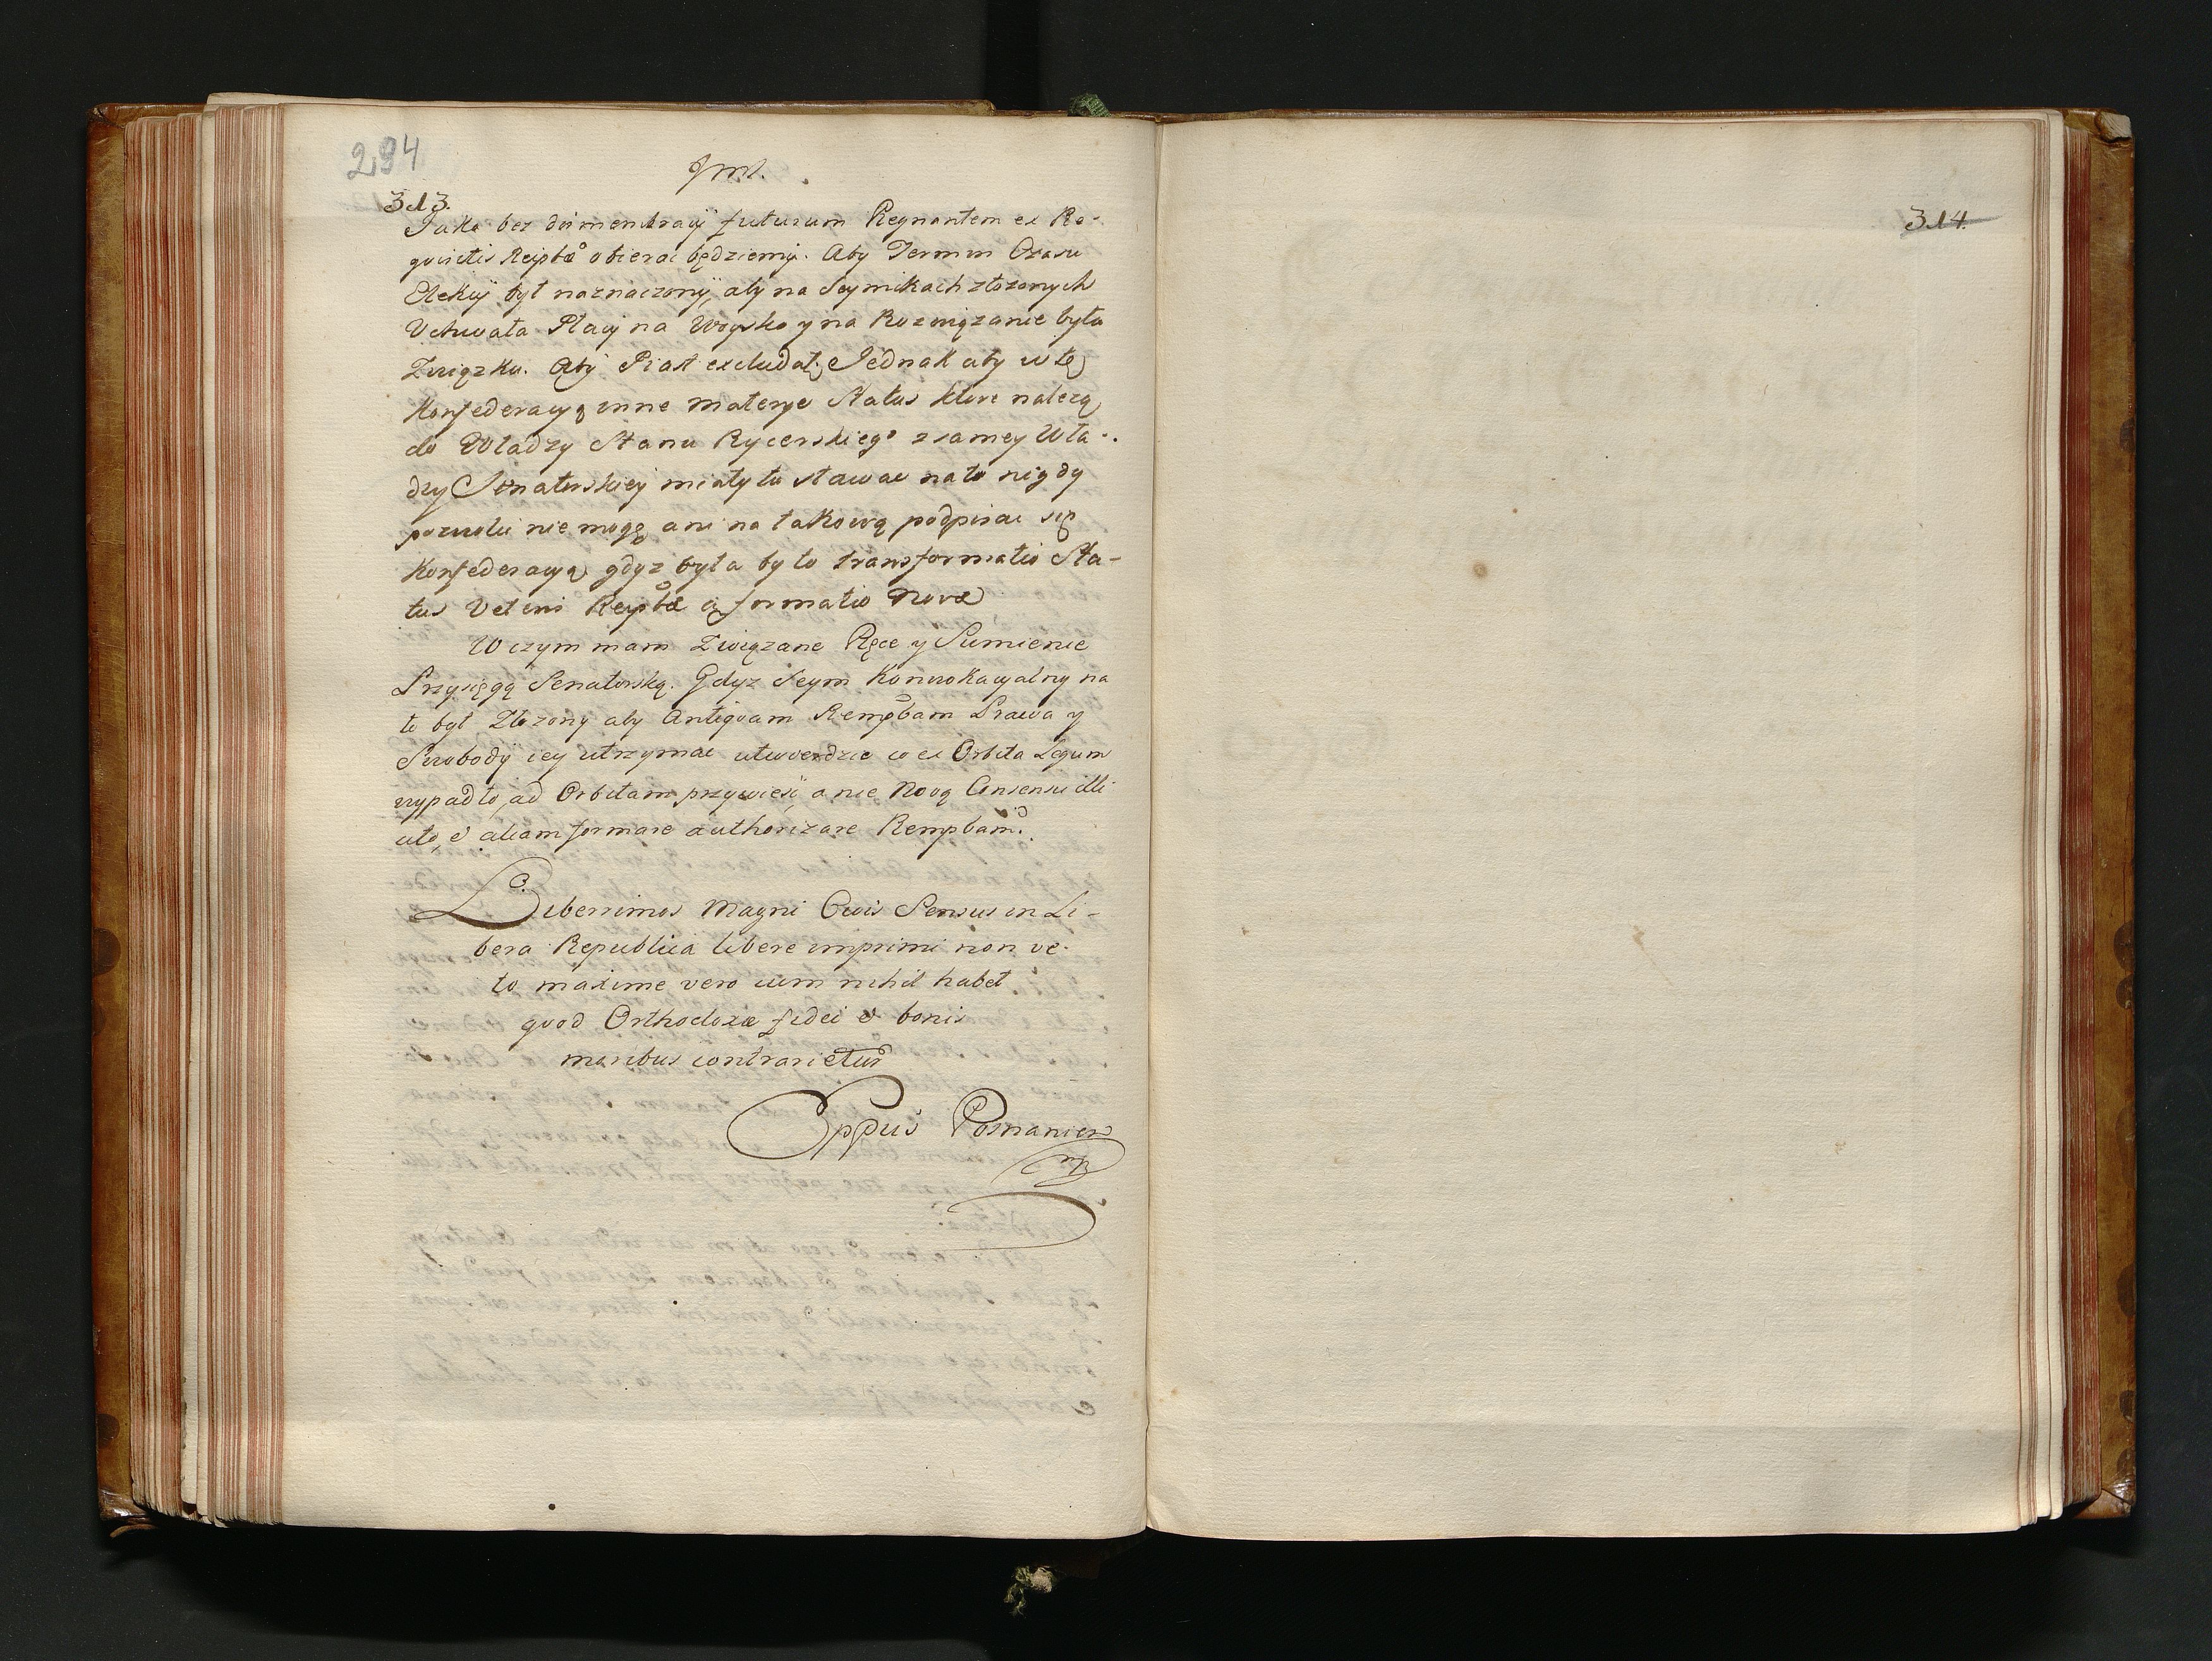 294
Jmt.
313.
Jako bez dismembracÿ futurum Regnantem ex Re-
quisitis Reipbae obierac będziemy. Aby Termin Czasu
Elekcÿ był naznaczonÿ, aby na Seymikach złozonych
Vchwała Płacÿ na Woysko y na Rozwiązanie była
Związku. Abÿ Piast excludat. Jednak aby w tę
Konfederacyą inne materye Status ktore nalezą
do Władzy Stanu Rycerskiego z samey Wła-
dzy Senatorskiey miały tu stawac na to nigdy
pozwolic nie mogę, ani na takową podpisac się
Konfederacyą, gdyz była by to transformatio Sta-
tus Veteris Reipbae et formatio Novae
W czym mam Związane Ręce y Sumienie
Przysięgą Senatorską. Gdyz Seym Konwokacyalny na
to był Złozony aby Antiquam Rempbam Prawa y
Swobody iey utrzymac utwierdzic co ex Orbita Legum
wypadło, ad Orbitam przywiesc, a nie Nową Consensu illi
cito, et aliam formare authorizare Rempbam.
Liberrimos Magni Civis Sensus in Li-
bera Republica libere imprimi non ve-
to maxime vero cum nihil habet
quod Orthodoxae fidei et bonis
moribus contrarietur
Eppus Posnanien
mp
314.